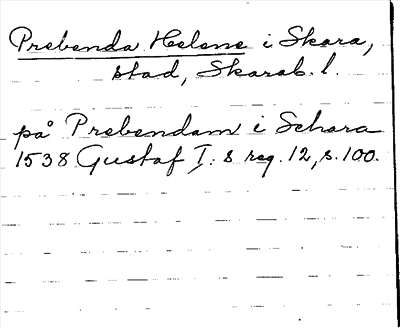 Prebenda Helene i Skara,
stad, Skarab. l.
på Prebendam i Schara
1538 Gustaf I: s reg. 12, s. 100.